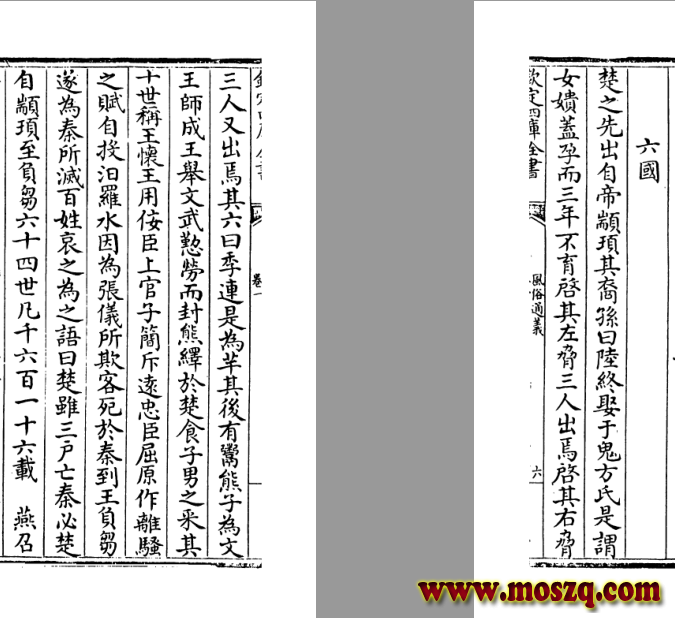 六國
楚之先出自帝顓頊其裔孫曰陸終娶于鬼方氏是謂
女嬇蓋孕而三年不育啓其左脅三人出焉啓其右脅
欽定四庫全書
風俗通義
六
卷一
三人又出焉其六曰季連是為羋其後有鬻熊子為文
王師成王舉文武懃勞而封熊繹於楚食子男之采其
十世稱王懷王用佞臣上官子簡斥遠忠臣屈原作離騷
之賦自投汨羅水因為張儀所欺客死於秦到王負芻
遂為秦所滅百姓哀之為之語曰楚雖三戸亡秦必楚
自顓頊至負芻六十四世凡千六百一十六載 燕召
www.moszq.com